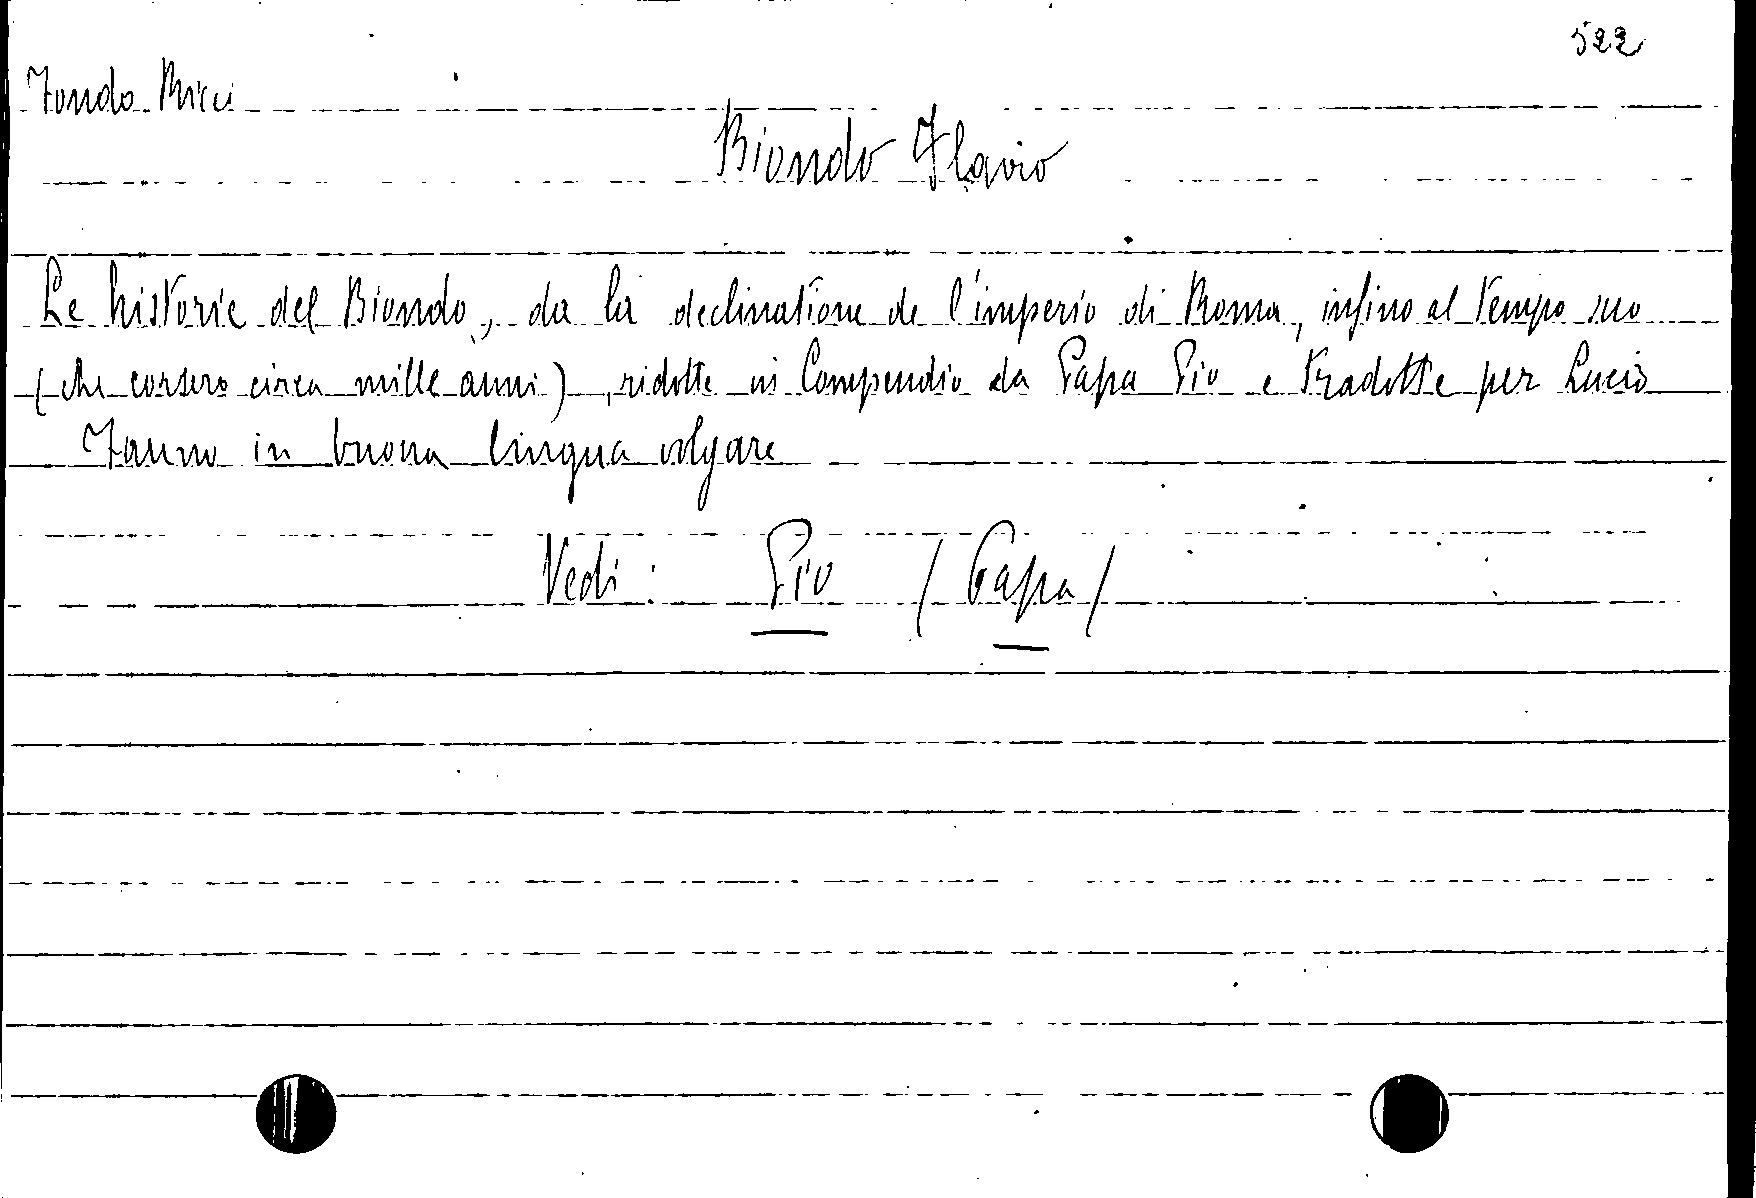 522
Fondo Ricci
Biondo Flavio
Le historie del Biondo, da la declinatione de l'imperio di Roma, infino al tempo suo
(che corsero circa mille anni), ridotte in Compendio da Papa Pio e tradotte per Lucio
Fauno in buona lingua volgare
Vedi: Pio (Papa)